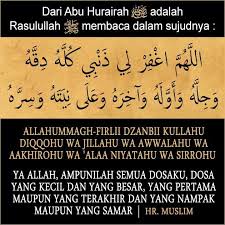 Dari Abu Hurairah ﷺ adalah
Rasulullah ﷺ membaca dalam sujudnya :
اَللَّهُمَّ اغْفِرْ لِي ذَنْبِي كُلَّهُ دِقَّهُ
وَجِلَّهُ وَأَوَّلَهُ وَآخِرَهُ وَعَلَى نِيَتَهُ وَسِرَّهُ
ALLAHUMMAGH-FIRLII DZANBII KULLAHU
DIQQOHU WA JILLAHU WA AWWALAHU WA
AAKHIROHU WA 'ALAA NIYATAHU WA SIRROHU
YA ALLAH, AMPUNILAH SEMUA DOSAKU, DOSA
YANG KECIL DAN YANG BESAR, YANG PERTAMA
MAUPUN YANG TERAKHIR DAN YANG NAMPAK
MAUPUN YANG SAMAR | HR. MUSLIM